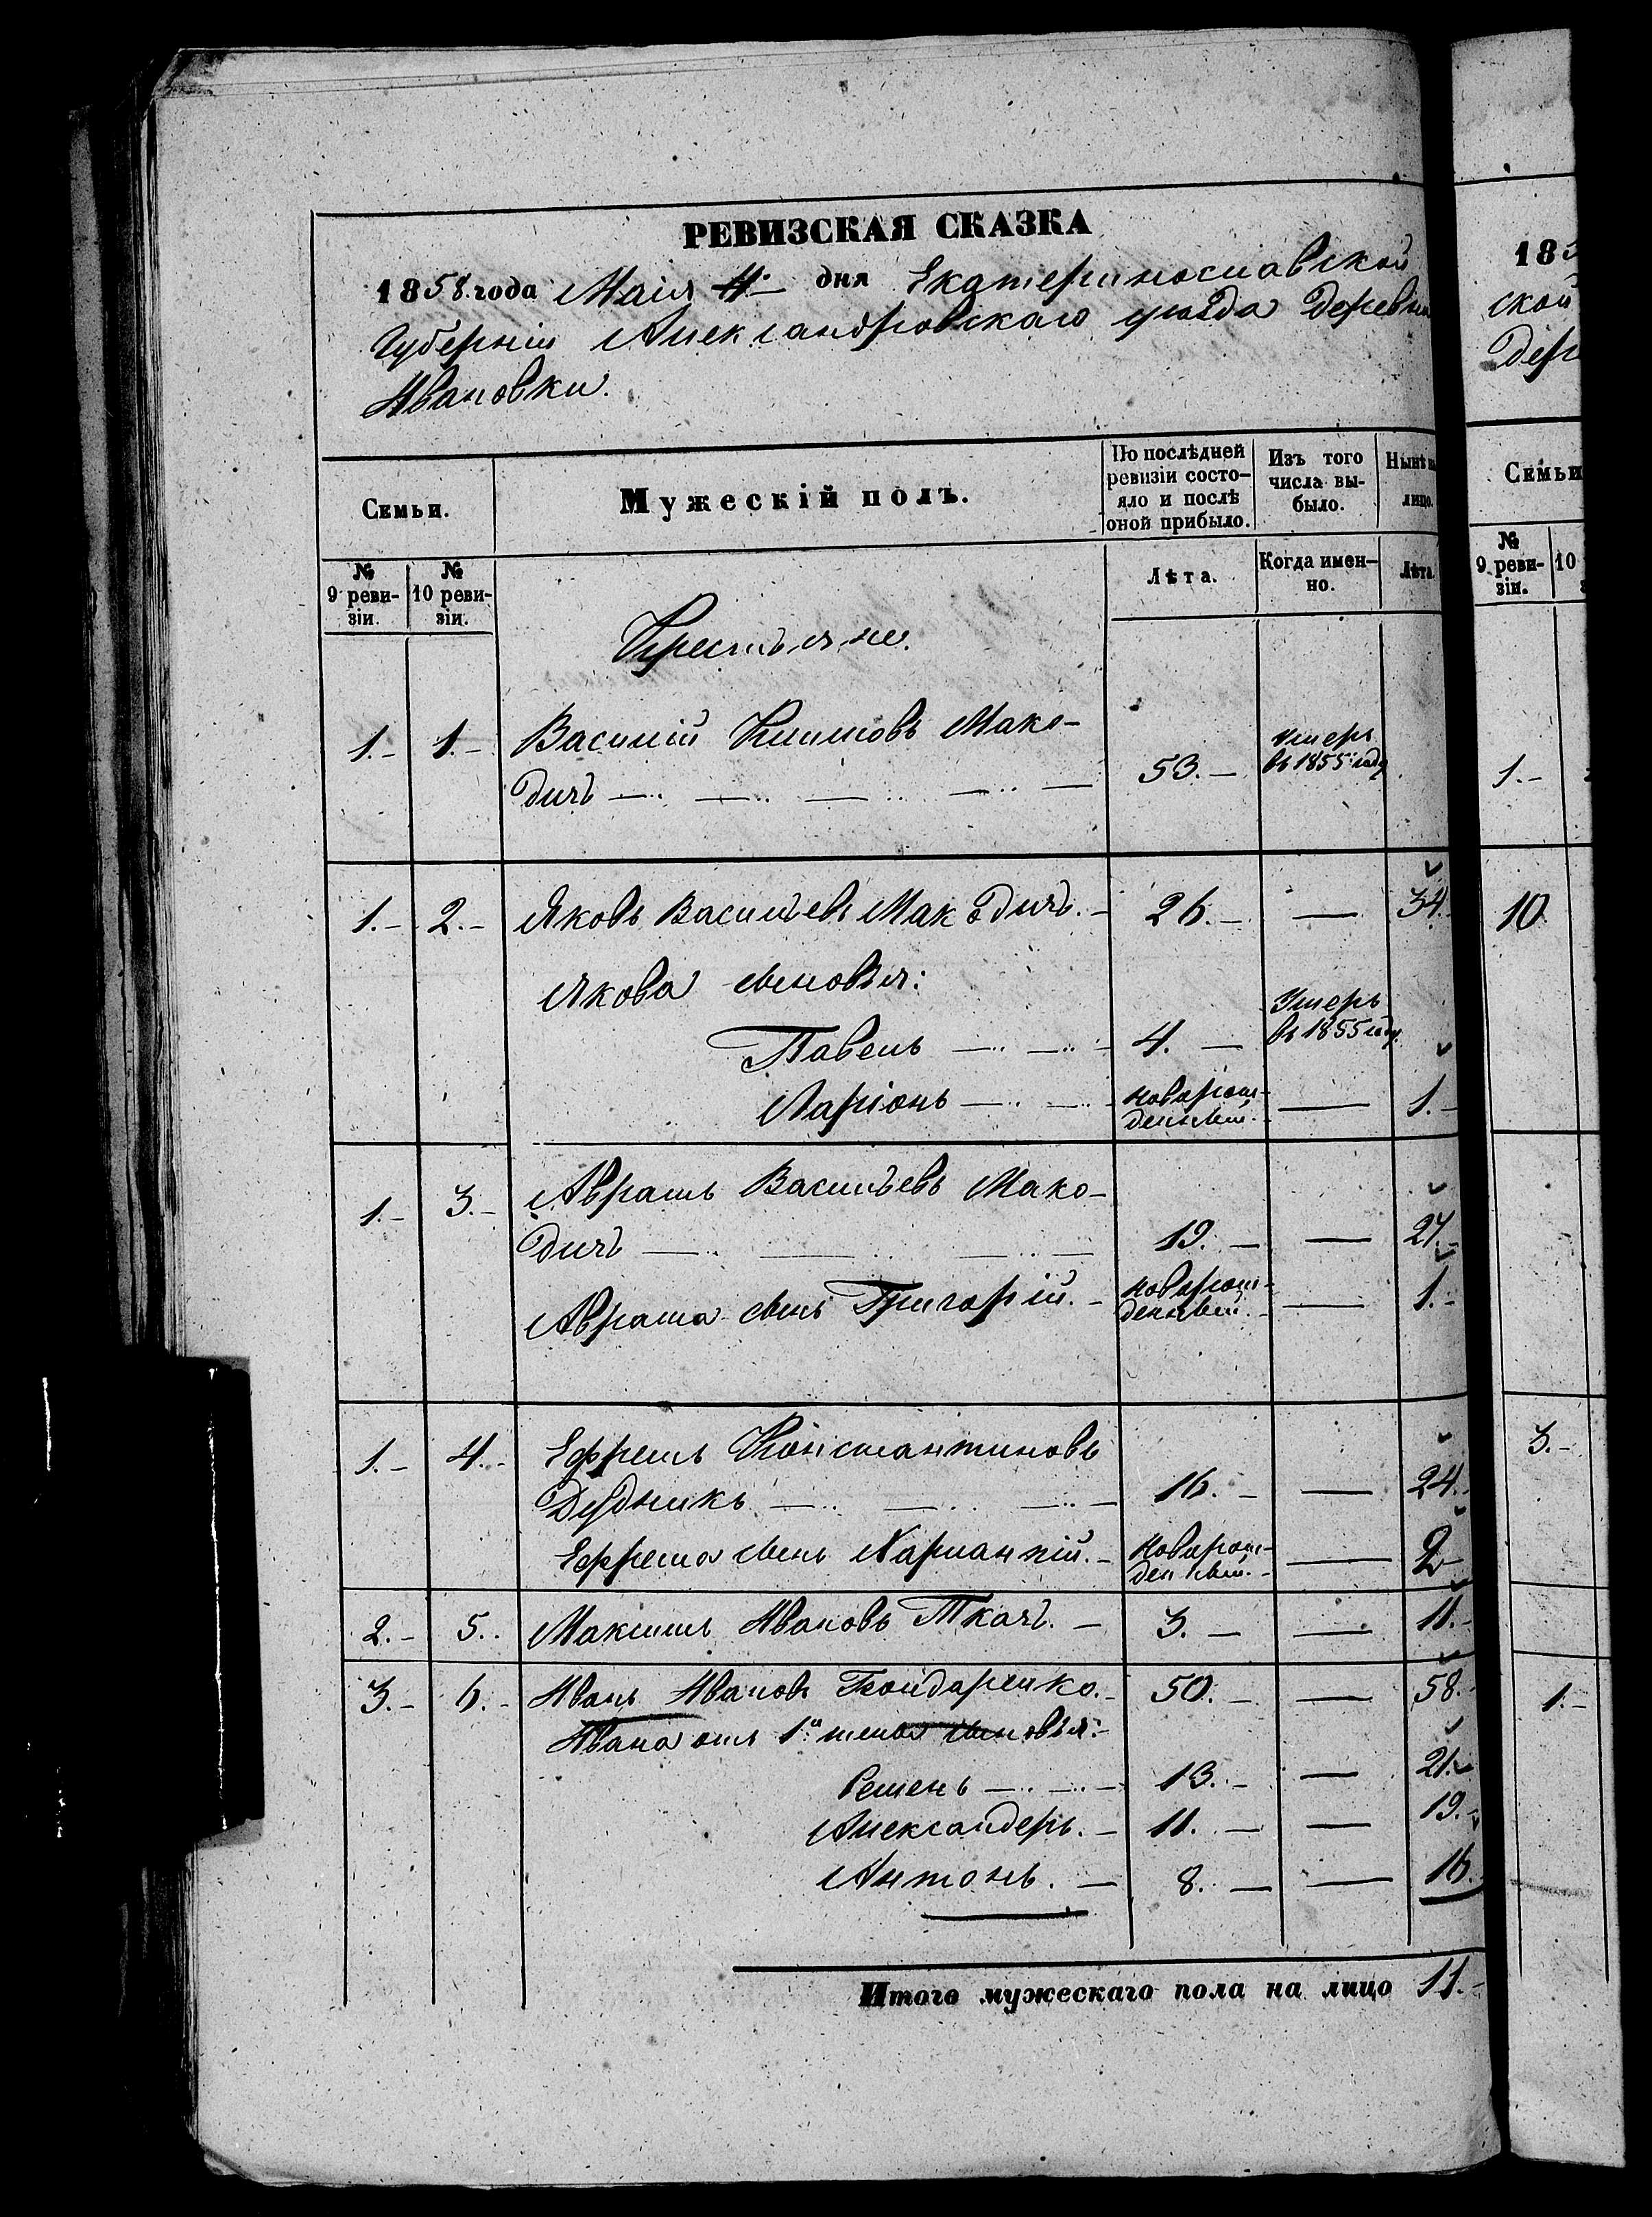 РЕВИЗСКАЯ СКАЗКА
1858 года Маія 4 дня Екатеринославской
Губерніи Александровскаго уѣзда Деревни
Ивановки.
Семьи.
Мужескій полъ.
По послѣдней
ревизіи состо-
яло и послѣ
оной прибыло.
Изъ того
числа вы-
было.
Нынѣ на
лицо.
№
9 реви-
зіи.
№
10 реви-
зіи.
Лѣта.
Когда имен-
но.
Лѣта
Крестьяне.
1.- 1.- Василій Климовъ Мако-
дичъ 53.- умеръ
въ 1855 году
1.- 2.- Яковъ Васильевъ Макодичъ.- 26.- — 34.-
Якова сыновья:
Павелъ 4.- Умеръ
въ 1855 году.
Ларіонъ новорож-
денный.- — 1.-
1.- 3.- Аврамъ Васильевъ Мако-
дичъ 19.- — 27.-
Аврама сынъ Григорій.- новорож-
денный.- — 1.-
1.- 4.- Ефремъ Константиновъ
Дудникъ 16.- — 24.-
Ефрема сынъ Харлампій.- новорож-
денный.- — 2-
2.- 5.- Максимъ Ивановъ Ткачъ.- 3.- — 11.-
3.- 6.- Иванъ Ивановъ Бондаренко.- 50.- — 58.-
Ивана отъ 1й жены сыновья:-
Семенъ 13.- — 21.-
Александеръ.- 11.- — 19.-
Антонъ.- 8.- — 16.-
Итого мужескаго пола на лицо 11.-
185
ской
Дер
Семьи
№
9 реви-
зіи.
10
1.-
10
3.-
1.-